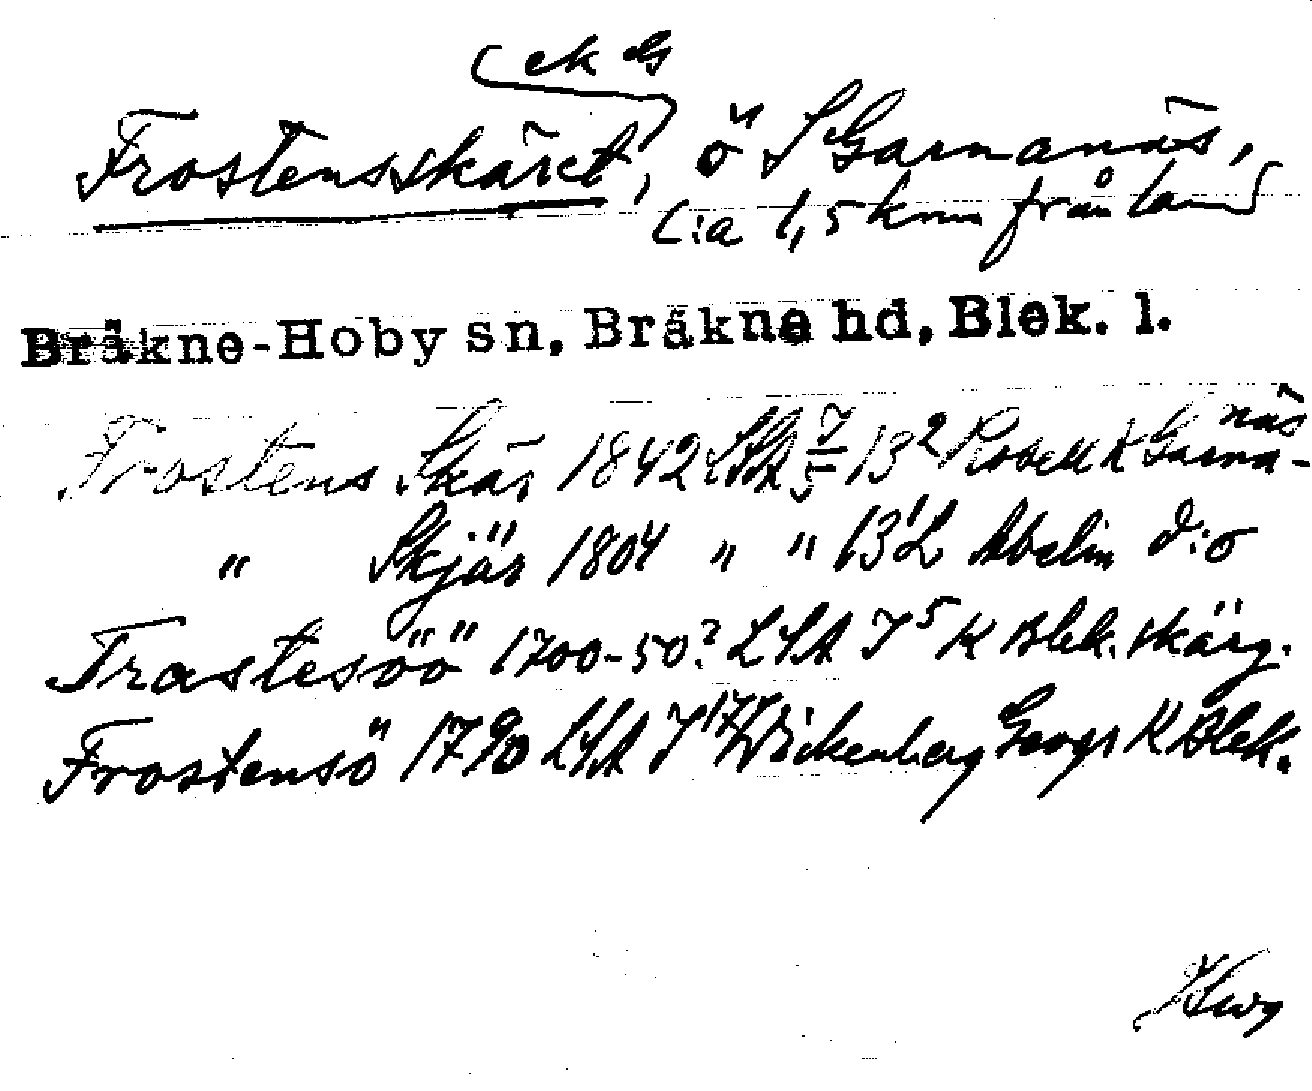 ek G
Frostensskäret, ö S Garnanäs,
c:a 1,5 km från land
Bräkne-Hoby sn, Bräkne hd, Blek. l.
Frostens Skär 1842 LSA 7/5 13² Robell K Garnanäs
" Skjär 1804 " " 13¹ L Abelin d:o
Trastesöö 1700-50? LSA I⁵ K Blek. skärg.
Frostensö 1790 LSA I¹⁷ Wickenberg Geogr K Blek.